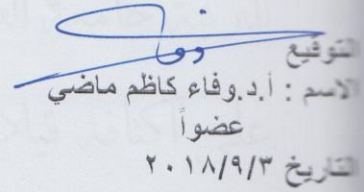 التوقيع
الاسم : أ.د.وفاء كاظم ماضي
عضواً
التاريخ ٢٠١٨/٩/٣